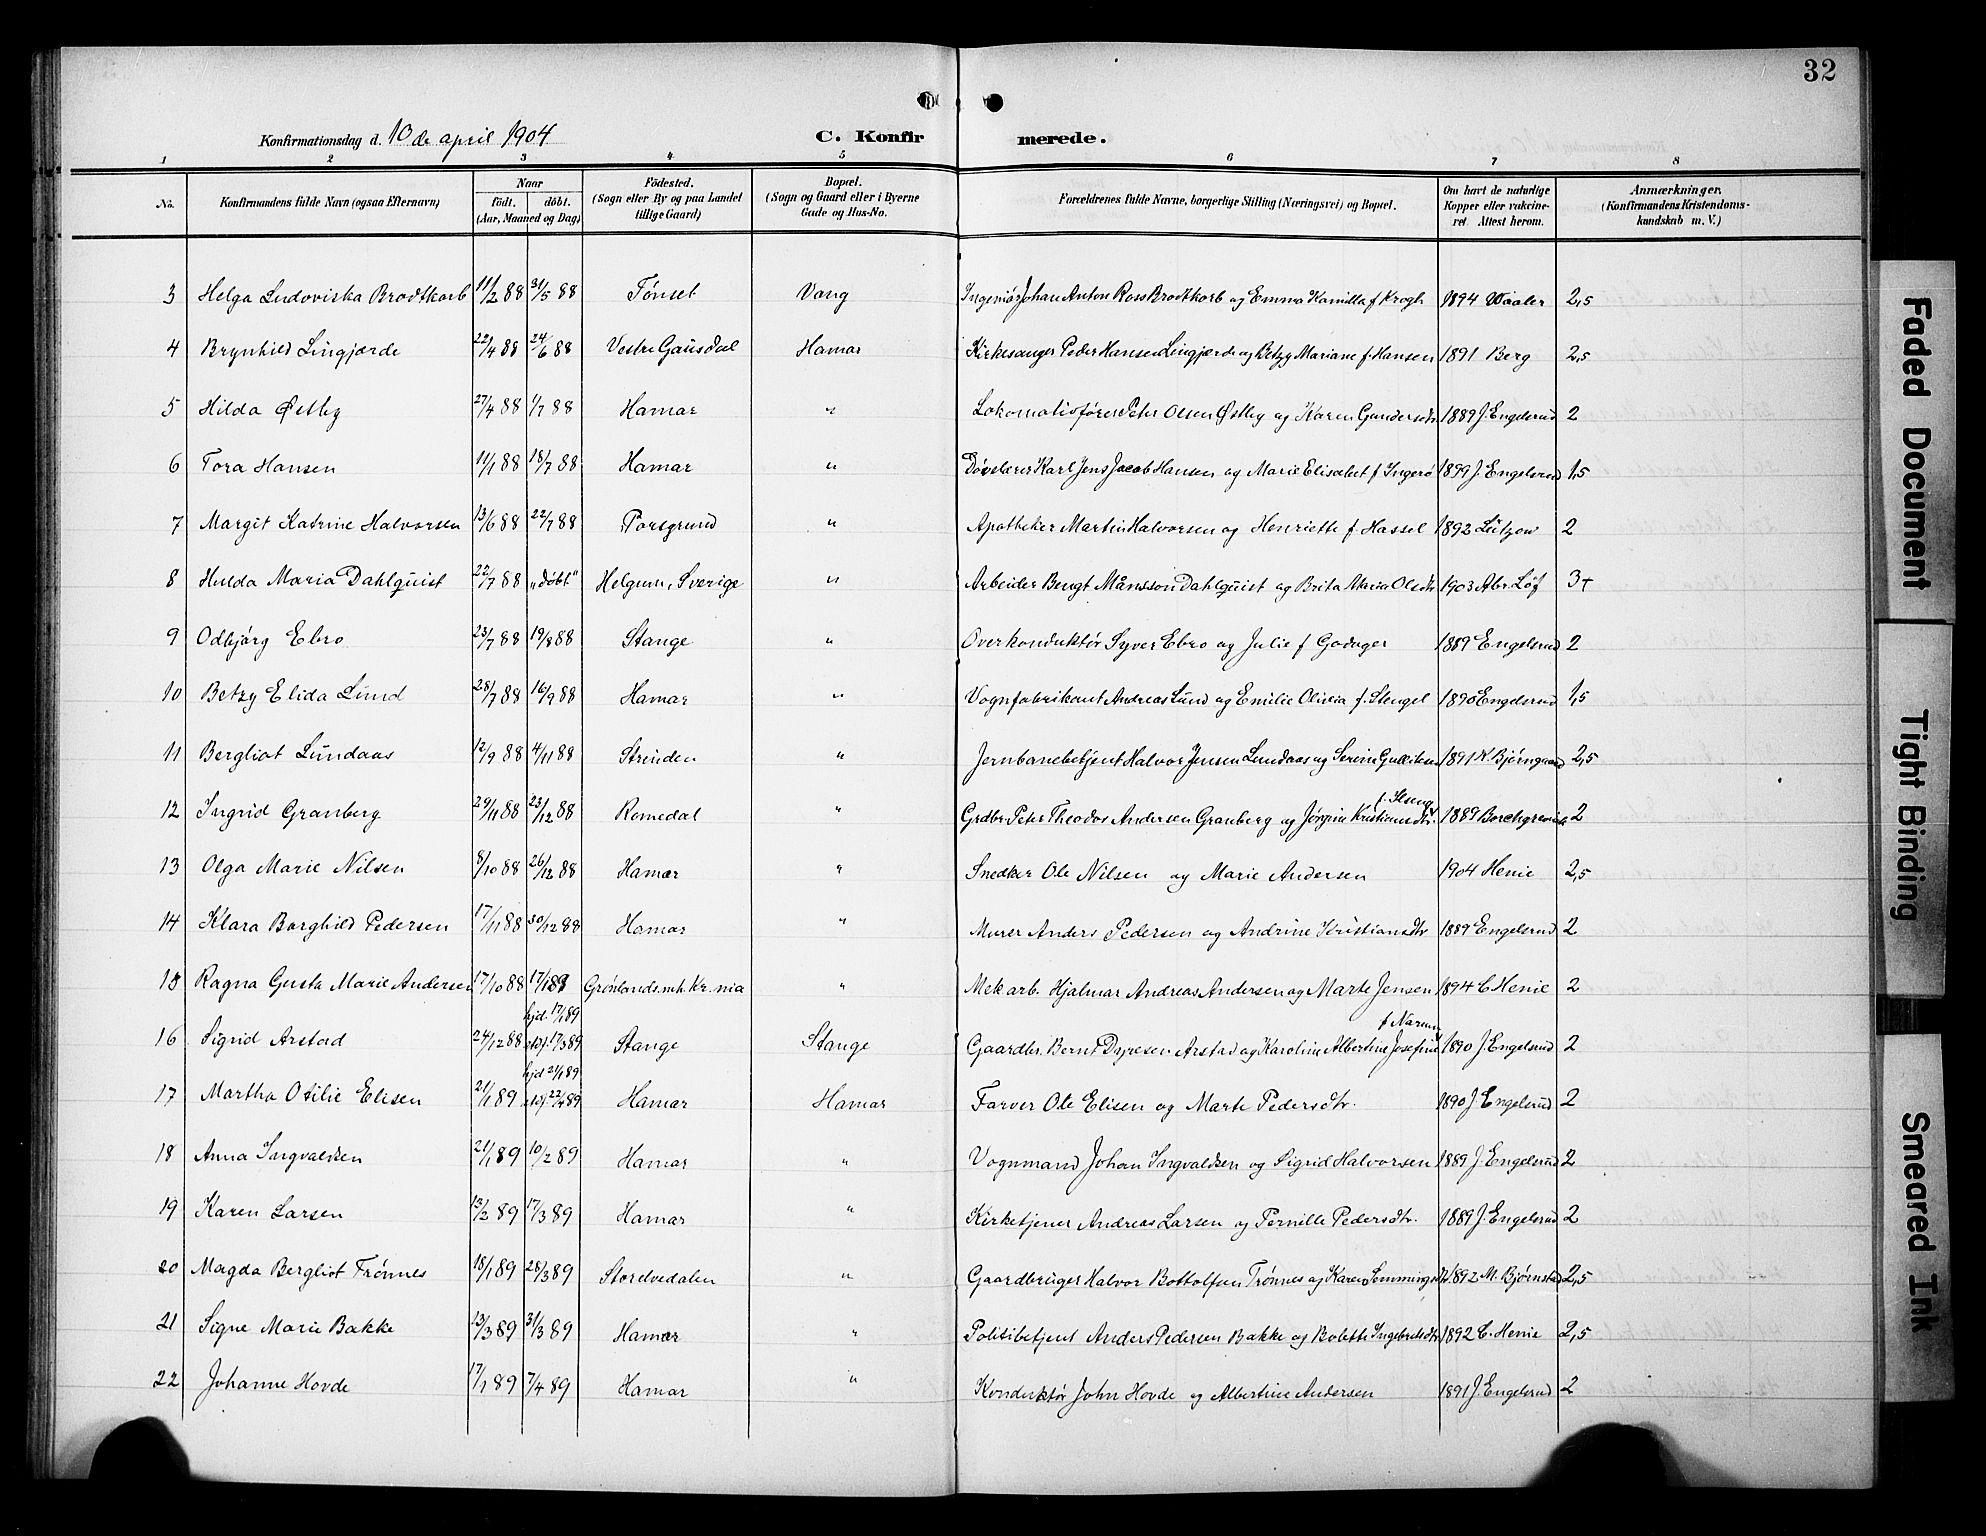 32
Konfirmationsdag d. 10 de april 1904.
C. Konfir merede.
1 2 3 4 5 6 7 8
No.
Konfirmandens fulde Navn (ogsaa Efternavn)
Naar
født. døbt.
(Aar, Maaned og Dag)
Fødested.
(Sogn eller By og paa Landet
tillige Gaard)
Bopæl.
(Sogn og Gaard eller i Byerne
Gade og Hus-No.
Forældrenes fulde Navne, borgerlige Stilling (Næringsvei) og Bopæl.
Om havt de naturlige
Kopper eller vakcine-
ret. Attest herom.
Anmærkninger.
(Konfirmandens Kristendoms-
kundskab m. V.)
3 Helga Ludoviska Brodtkorb 11/2 88 31/5 88 Tönset Vang Ingeniør Johan Anton Ross Brodtkorb og Emma Kamilla f Krogh 1894 Vaaler 2,5
4 Brynhild Lingjærde 22/4 88 24/6 88 Vestre Gausdal Hamar Kirkesanger Peder Hansen Lingjærde og Betzy Mariane f. Hansen 1891 Berg 2,5
5 Hilda Østby 27/4 88 1/7 88 Hamar " Lokomotivfører Peter Olsen Østby og Karen Gundersdtr. 1889 J. Engelsrud 2
6 Tora Hansen 11/1 88 18/7 88 Hamar " Døvelærer Karl Jens Jacob Hansen og Marie Elisabet f Ingerö 1899 J. Engelsrud 1,5
7 Margit Katrine Halvorsen 13/6 88 22/7 88 Porsgrund " Apotheker Martin Halvorsen og Henriette f. Hassel 1892 Lützow 2
8 Hulda Maria Dahlquist 22/7 88 „døbt" Helgum, Sverige " Arbeider Bengt Månsson Dahlquist og Brita Maria Olsdtr 1903 Abr. Löf 3+
9 Odbjörg Ebro 23/7 88 19/8 88 Stange " Overkonduktör Syver Ebro og Julie f Godager 1889 Engelsrud 2
10 Betzy Elida Lund 28/7 88 16/9 88 Hamar " Vognfabrikant Andreas Lund og Emilie Olivia f. Stengel 1890 Engelsrud 1,5
11 Bergliot Lundaas 12/9 88 4/11 88 Strinden " Jernbanebetjent Halvor Jensen Lundaas og Serine Gulliksen 1891 K. Bjørngaard 2,5
f. Ilseng
12 Ingrid Granberg 29/11 88 23/12 88 Romedal " Grdbr. Peter Theodos Andersen Granberg og Jörgine Kristiansdtr. 1889 Borchgrevink 2
13 Olga Marie Nilsen 8/10 88 26/12 88 Hamar " Snedker Ole Nilsen og Marie Andersen 1904 Henie 2,5
14 Klara Borghild Pedersen 17/11 88 30/12 88 Hamar " Murer Anders Pedersen og Andrine Kristiansdtr 1889 Engelsrud 2
15 Ragna Gusta Marie Andersen 17/10 88 17/1 89 Grönlands mh. Kr.nia " Mek arb. Hjalmar Andreas Andersen og Marte Jensen 1894 C Henie 2
hjd. 17/1 89 f Narum
16 Sigrid Arstad 24/12 88 stdf. 17/3 89 Stange Stange Gaardbr. Bernt Dyresen Arstad og Karoline Albertine Josefine 1890 J. Engelsrud 2
hjd 21/1 89
17 Martha Otilie Elisen 21/1 89 stdf. 22/4 89 Hamar Hamar Farver Ole Elisen og Marte Pedersdtr. 1890 J. Engelsrud 2
18 Anna Ingvaldsen 21/1 89 10/2 89 Hamar " Vognmand Johan Ingvaldsen og Sigrid Halvorsen 1889 J. Engelsrud 2
19 Karen Larsen 13/2 89 17/3 89 Hamar " Kirketjener Andreas Larsen og Pernille Pedersdtr. 1889 J. Engelsrud 2
20 Magda Bergliot Trönnes 18/1 89 28/3 89 Storelvedalen " Gaardbruger Halvor Bottolfsen Trönnes og Karen Semmingsdtr. 1892 M. Bjørnstad 2,5
21 Signe Marie Bakke 13/3 89 31/3 89 Hamar " Politibetjent Anders Pedersen Bakke og Bolette Ingebretsdtr 1892 C. Henie 2,5
22 Johanne Hovde 17/1 89 7/4 89 Hamar " Konduktör John Hovde og Albertine Andersen 1891 J. Engelsrud 2
Faded Document
Tight Binding
Smeared Ink